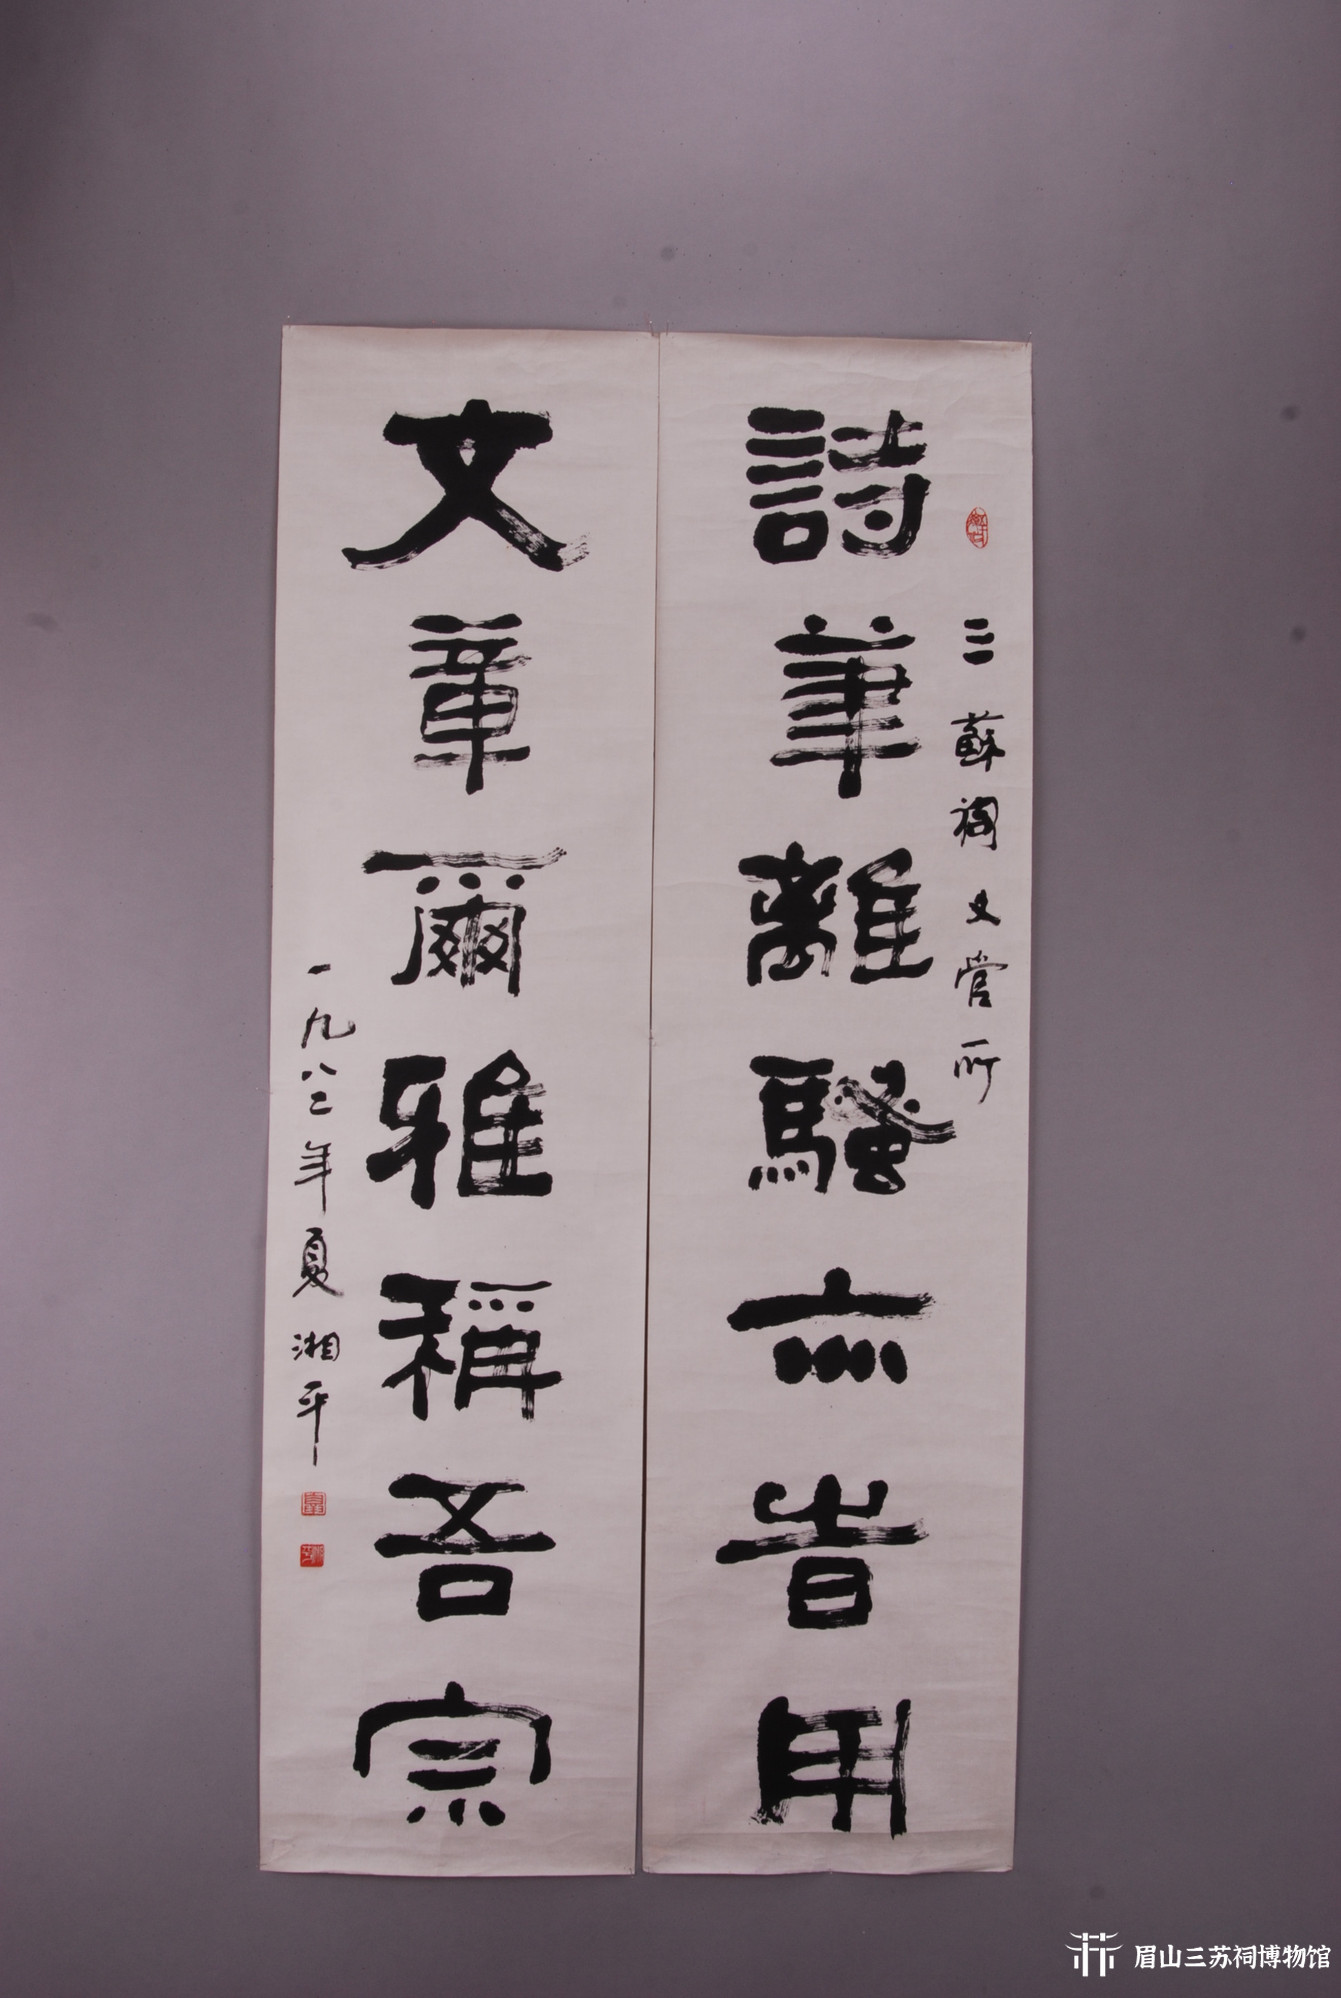 三蘇祠文管所
詩筆離騷亦皆用
文章爾雅稱吾宗
一九八二年夏湘平
眉山三苏祠博物馆